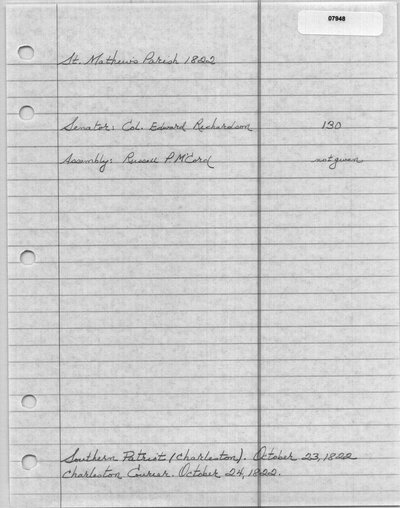 07948
St. Mathews Parish 1822
Senator: Col. Edward Richardson 130
Assembly: Russell P. McCord not given
Southern Patriot (Charleston). October 23, 1822
Charleston Courier. October 24, 1822.